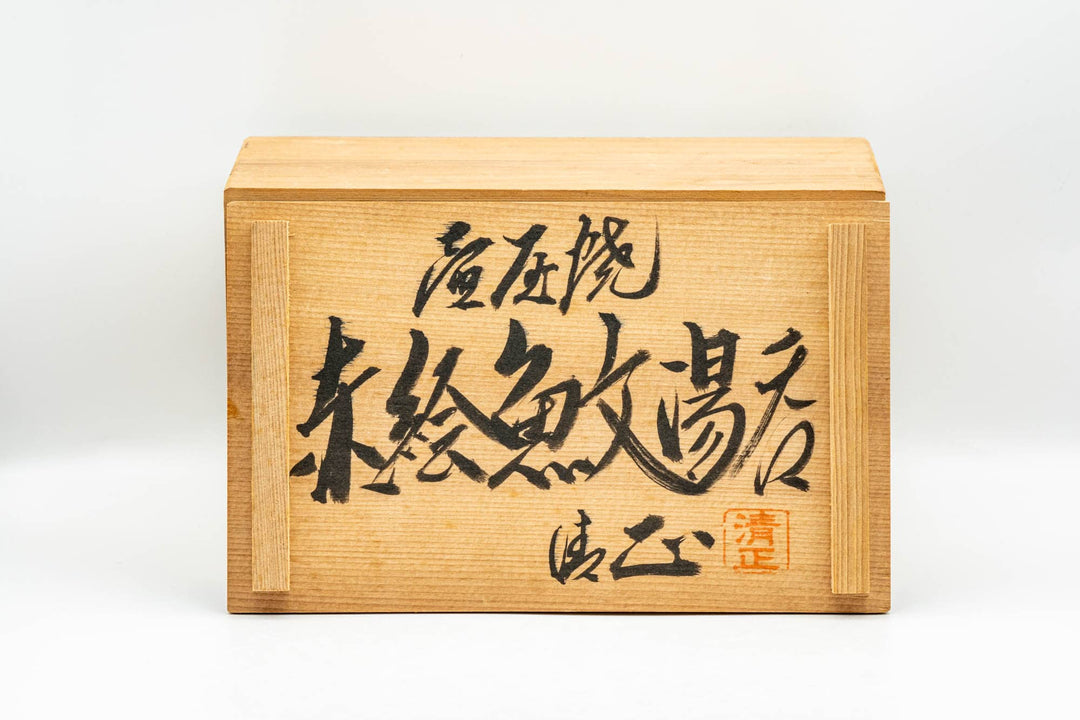 壺屋焼
赤絵魚文湯呑
清正
清正